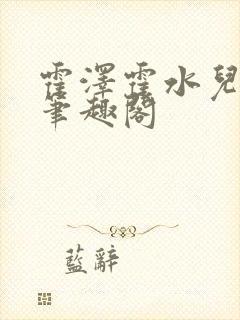 霍澤霍水兒
筆趣閣
藍辭